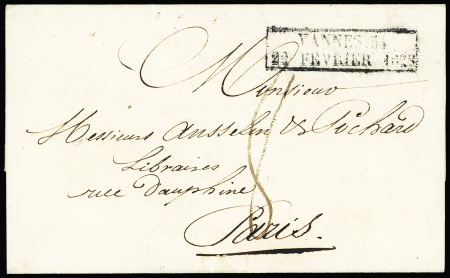 VANNES
FEVRIER
Monsieur
Messieurs Ansselin & Pochard
Libraires
rue Dauphine
Paris.
8